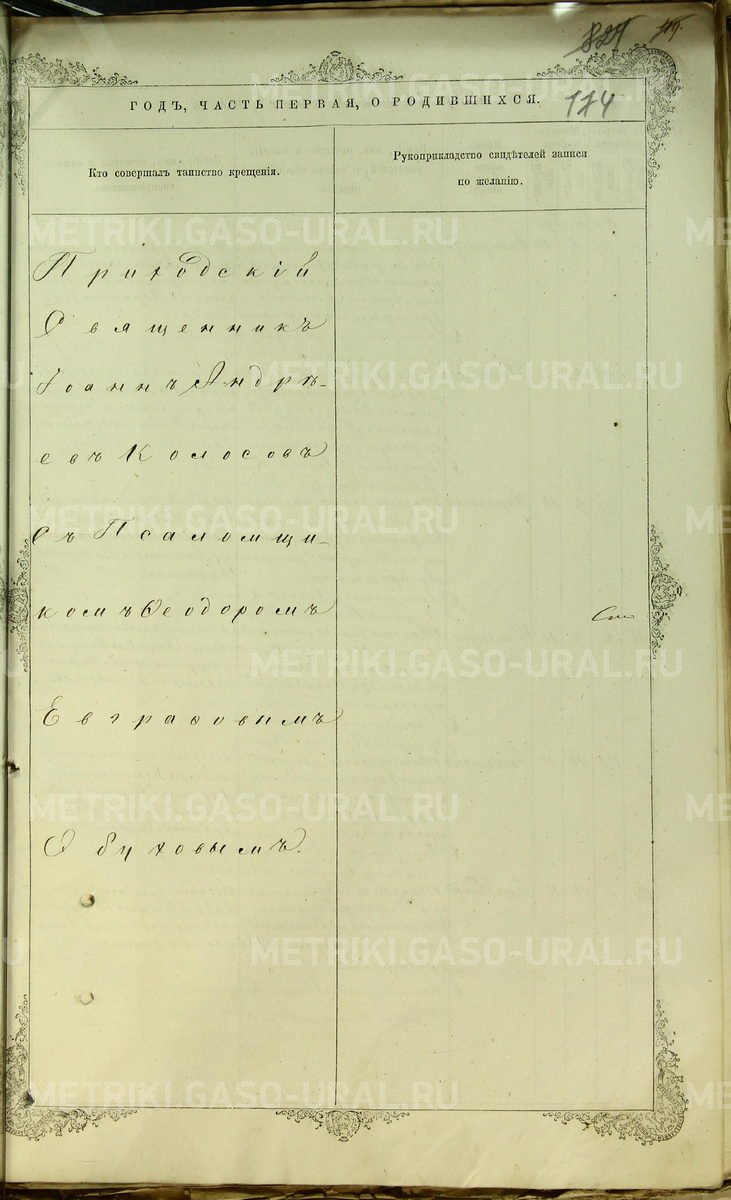 174
ГОДЪ, ЧАСТЬ ПЕРВАЯ, О РОДИВШИХСЯ.
Кто совершалъ таинство крещенія.
Рукоприкладство свидѣтелей записи
по желанію.
Приходскій
Священникъ
Іоаннъ Андрѣ-
евъ Колосовъ
Съ Псаломщи-
комъ Ѳеодоромъ
Евграфовымъ
Обуховымъ.
METRIKI.GASO-URAL.RU